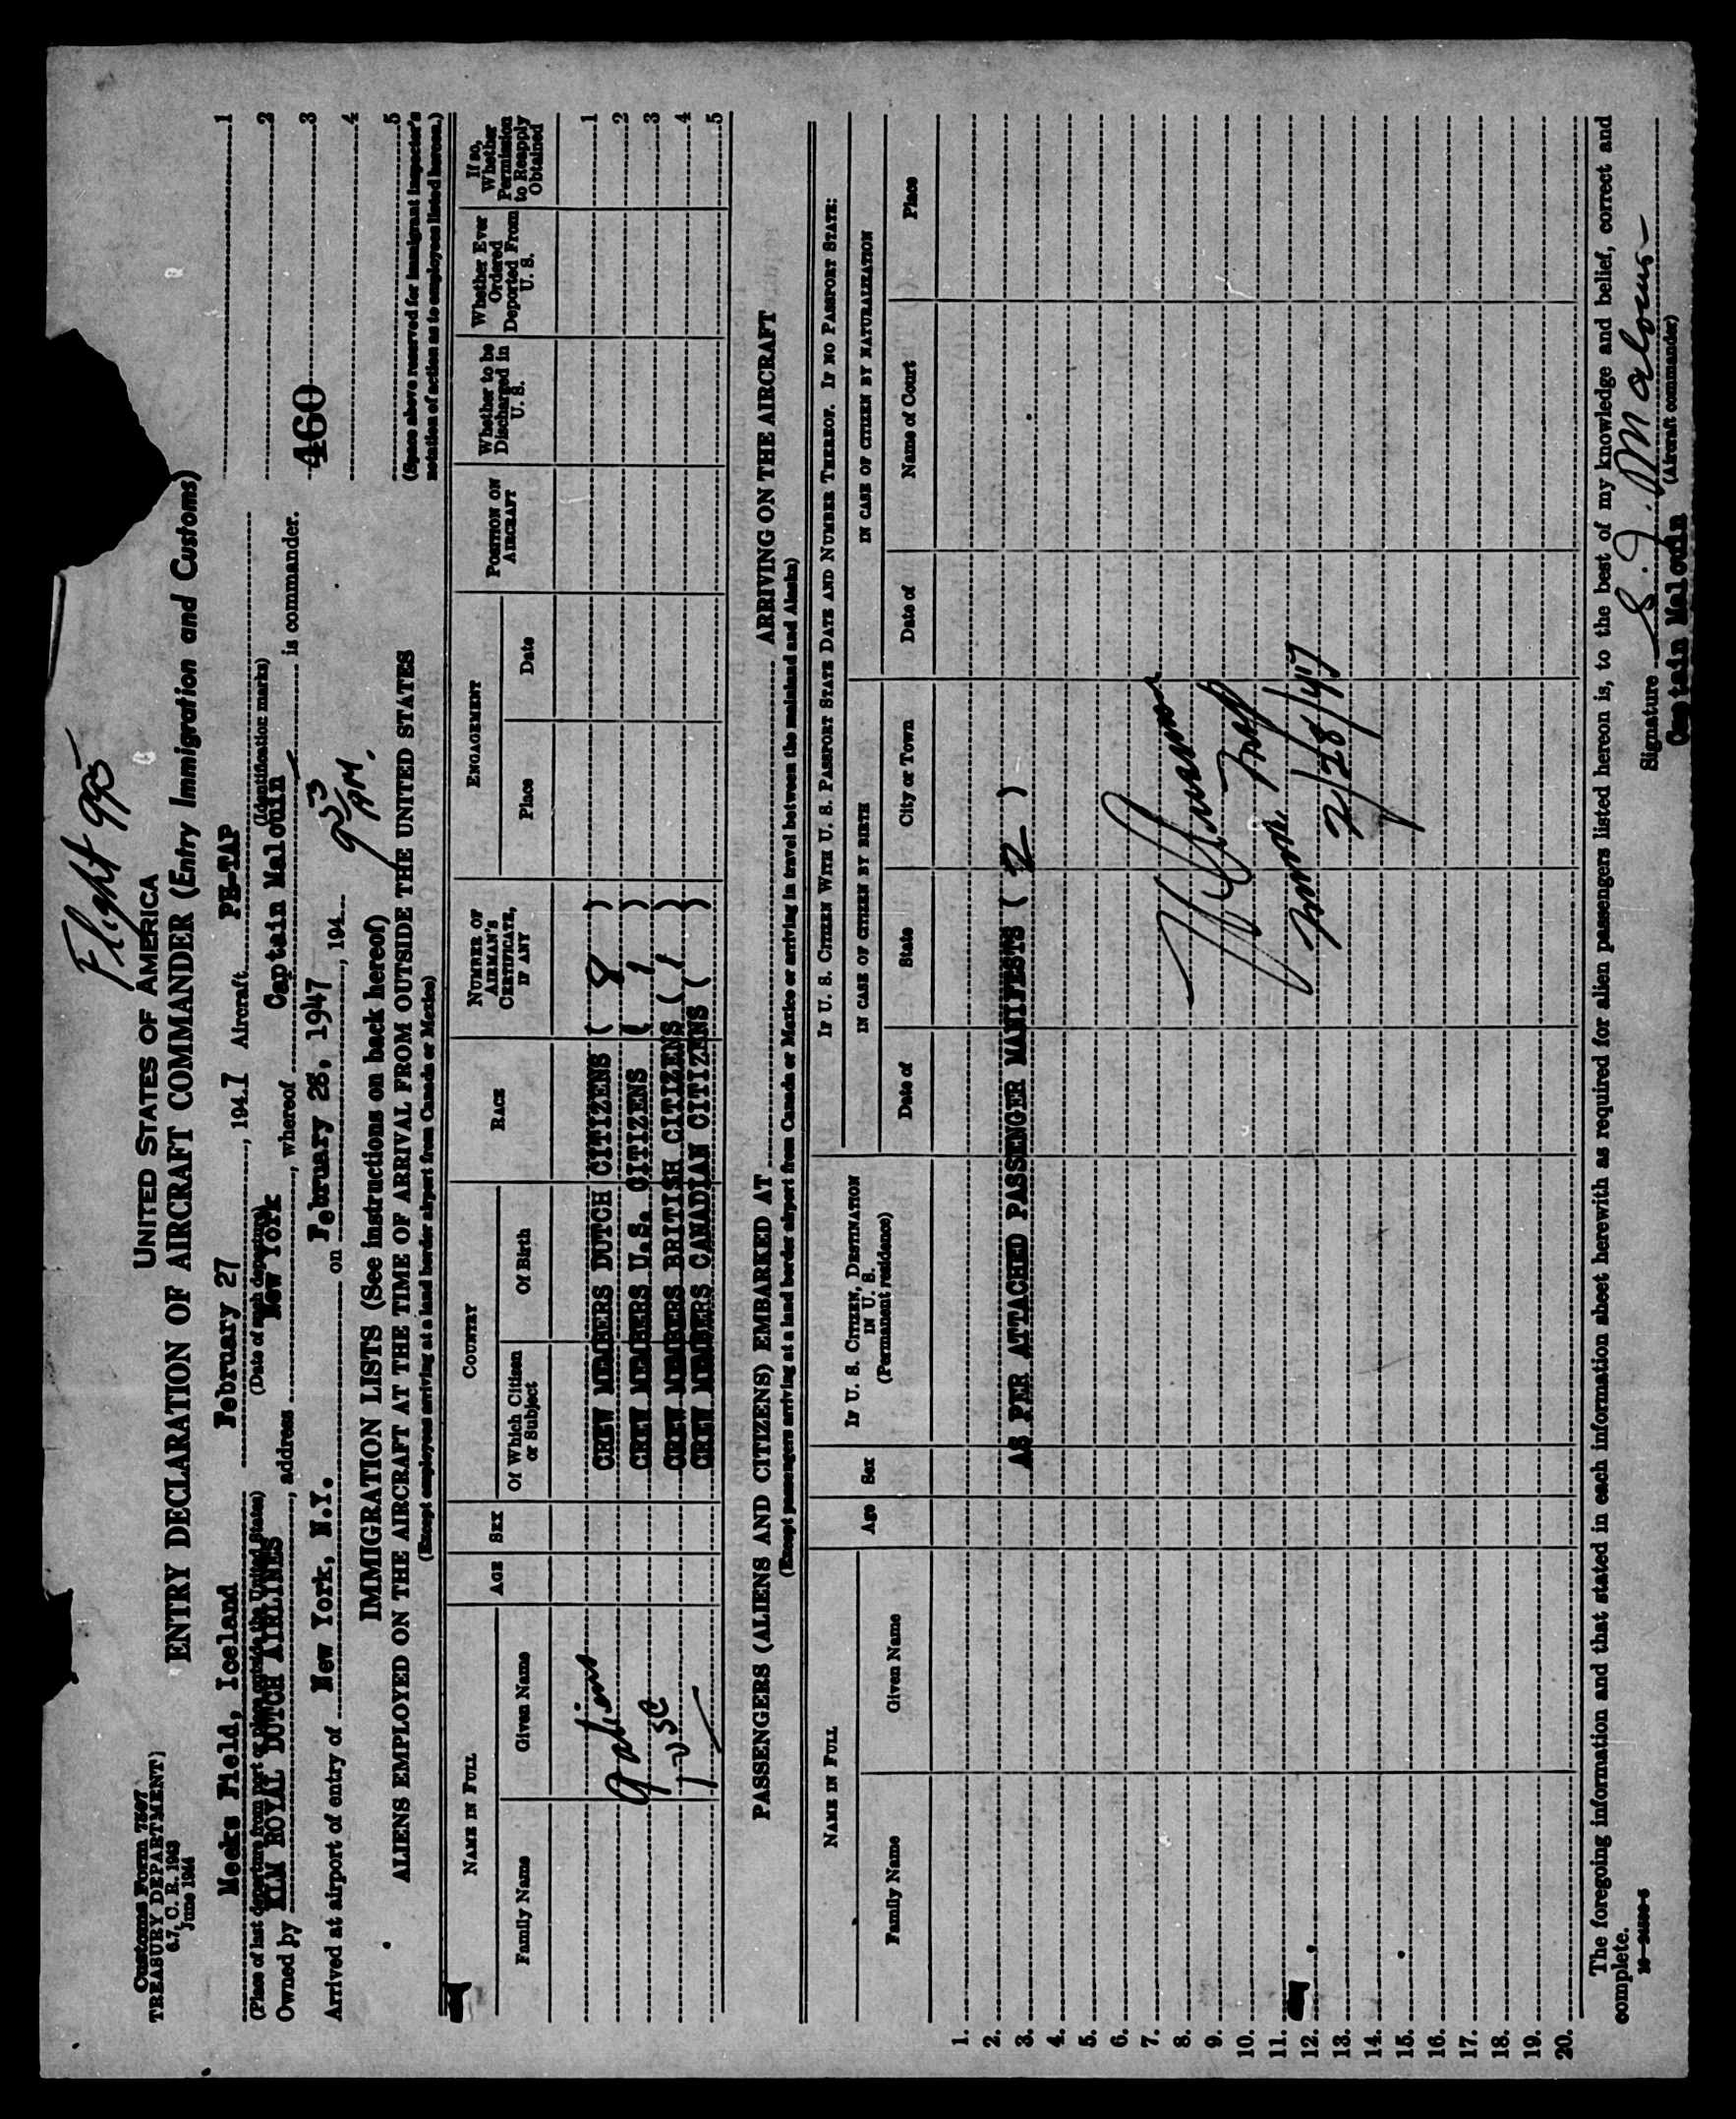 Flight 995
Customs Form 7507
TREASURY DEPARTMENT
6.7, C. R. 1943
June 1944
UNITED STATES OF AMERICA
ENTRY DECLARATION OF AIRCRAFT COMMANDER (Entry Immigration and Customs)
Meeks Field, Iceland February 27, 1947 Aircraft PH-TAP
(Place of last departure from port or place outside the United States) (Date of such departure) (Identification marks)
Owned by KLM ROYAL DUTCH AIRLINES, address New York, whereof Captain Malouin is commander.
Arrived at airport of entry of New York, N.Y. on February 28, 1947, 194
9 33 AM.
1
2
460 3
4
5
(Space above reserved for immigrant inspector's
notation of action as to employees listed hereon.)
IMMIGRATION LISTS (See instructions on back hereof)
ALIENS EMPLOYED ON THE AIRCRAFT AT THE TIME OF ARRIVAL FROM OUTSIDE THE UNITED STATES
(Except employees arriving at a land border airport from Canada or Mexico)
NAME IN FULL
Family Name Given Name
AGE SEX
COUNTRY
Of Which Citizen or Subject Of Birth
RACE
NUMBER OF AIRMAN'S CERTIFICATE, IF ANY
ENGAGEMENT
Place Date
POSITION ON AIRCRAFT
Whether to be Discharged in U. S.
Whether Ever Ordered Deported From U. S.
If so, Whether Permission to Reapply Obtained
CREW MEMBERS DUTCH CITIZENS ( 8 ) 1
CREW MEMBERS U.S. CITIZENS ( 1 ) 2
CREW MEMBERS BRITISH CITIZENS ( 1 ) 3
CREW MEMBERS CANADIAN CITIZENS ( ) 4
5
PASSENGERS (ALIENS AND CITIZENS) EMBARKED AT ARRIVING ON THE AIRCRAFT
(Except passengers arriving at a land border airport from Canada or Mexico or arriving in travel between the mainland and Alaska)
NAME IN FULL
Family Name Given Name
Age Sex
IF U. S. CITIZEN, DESTINATION IN U. S.
(Permanent residence)
IF U. S. CITIZEN WITH U. S. PASSPORT STATE DATE AND NUMBER THEREOF. IF NO PASSPORT STATE:
IN CASE OF CITIZEN BY BIRTH
Date of State City or Town
IN CASE OF CITIZEN BY NATURALIZATION
Date of Name of Court Place
1.
2.
3. AS PER ATTACHED PASSENGER MANIFESTS ( 2 )
4.
5.
6.
7.
8.
9.
10.
11.
12.
13.
14.
15.
16.
17.
18.
19.
20.
2/28/47
The foregoing information and that stated in each information sheet herewith as required for alien passengers listed hereon is, to the best of my knowledge and belief, correct and
complete.
Signature
(Aircraft commander)
Captain Malouin